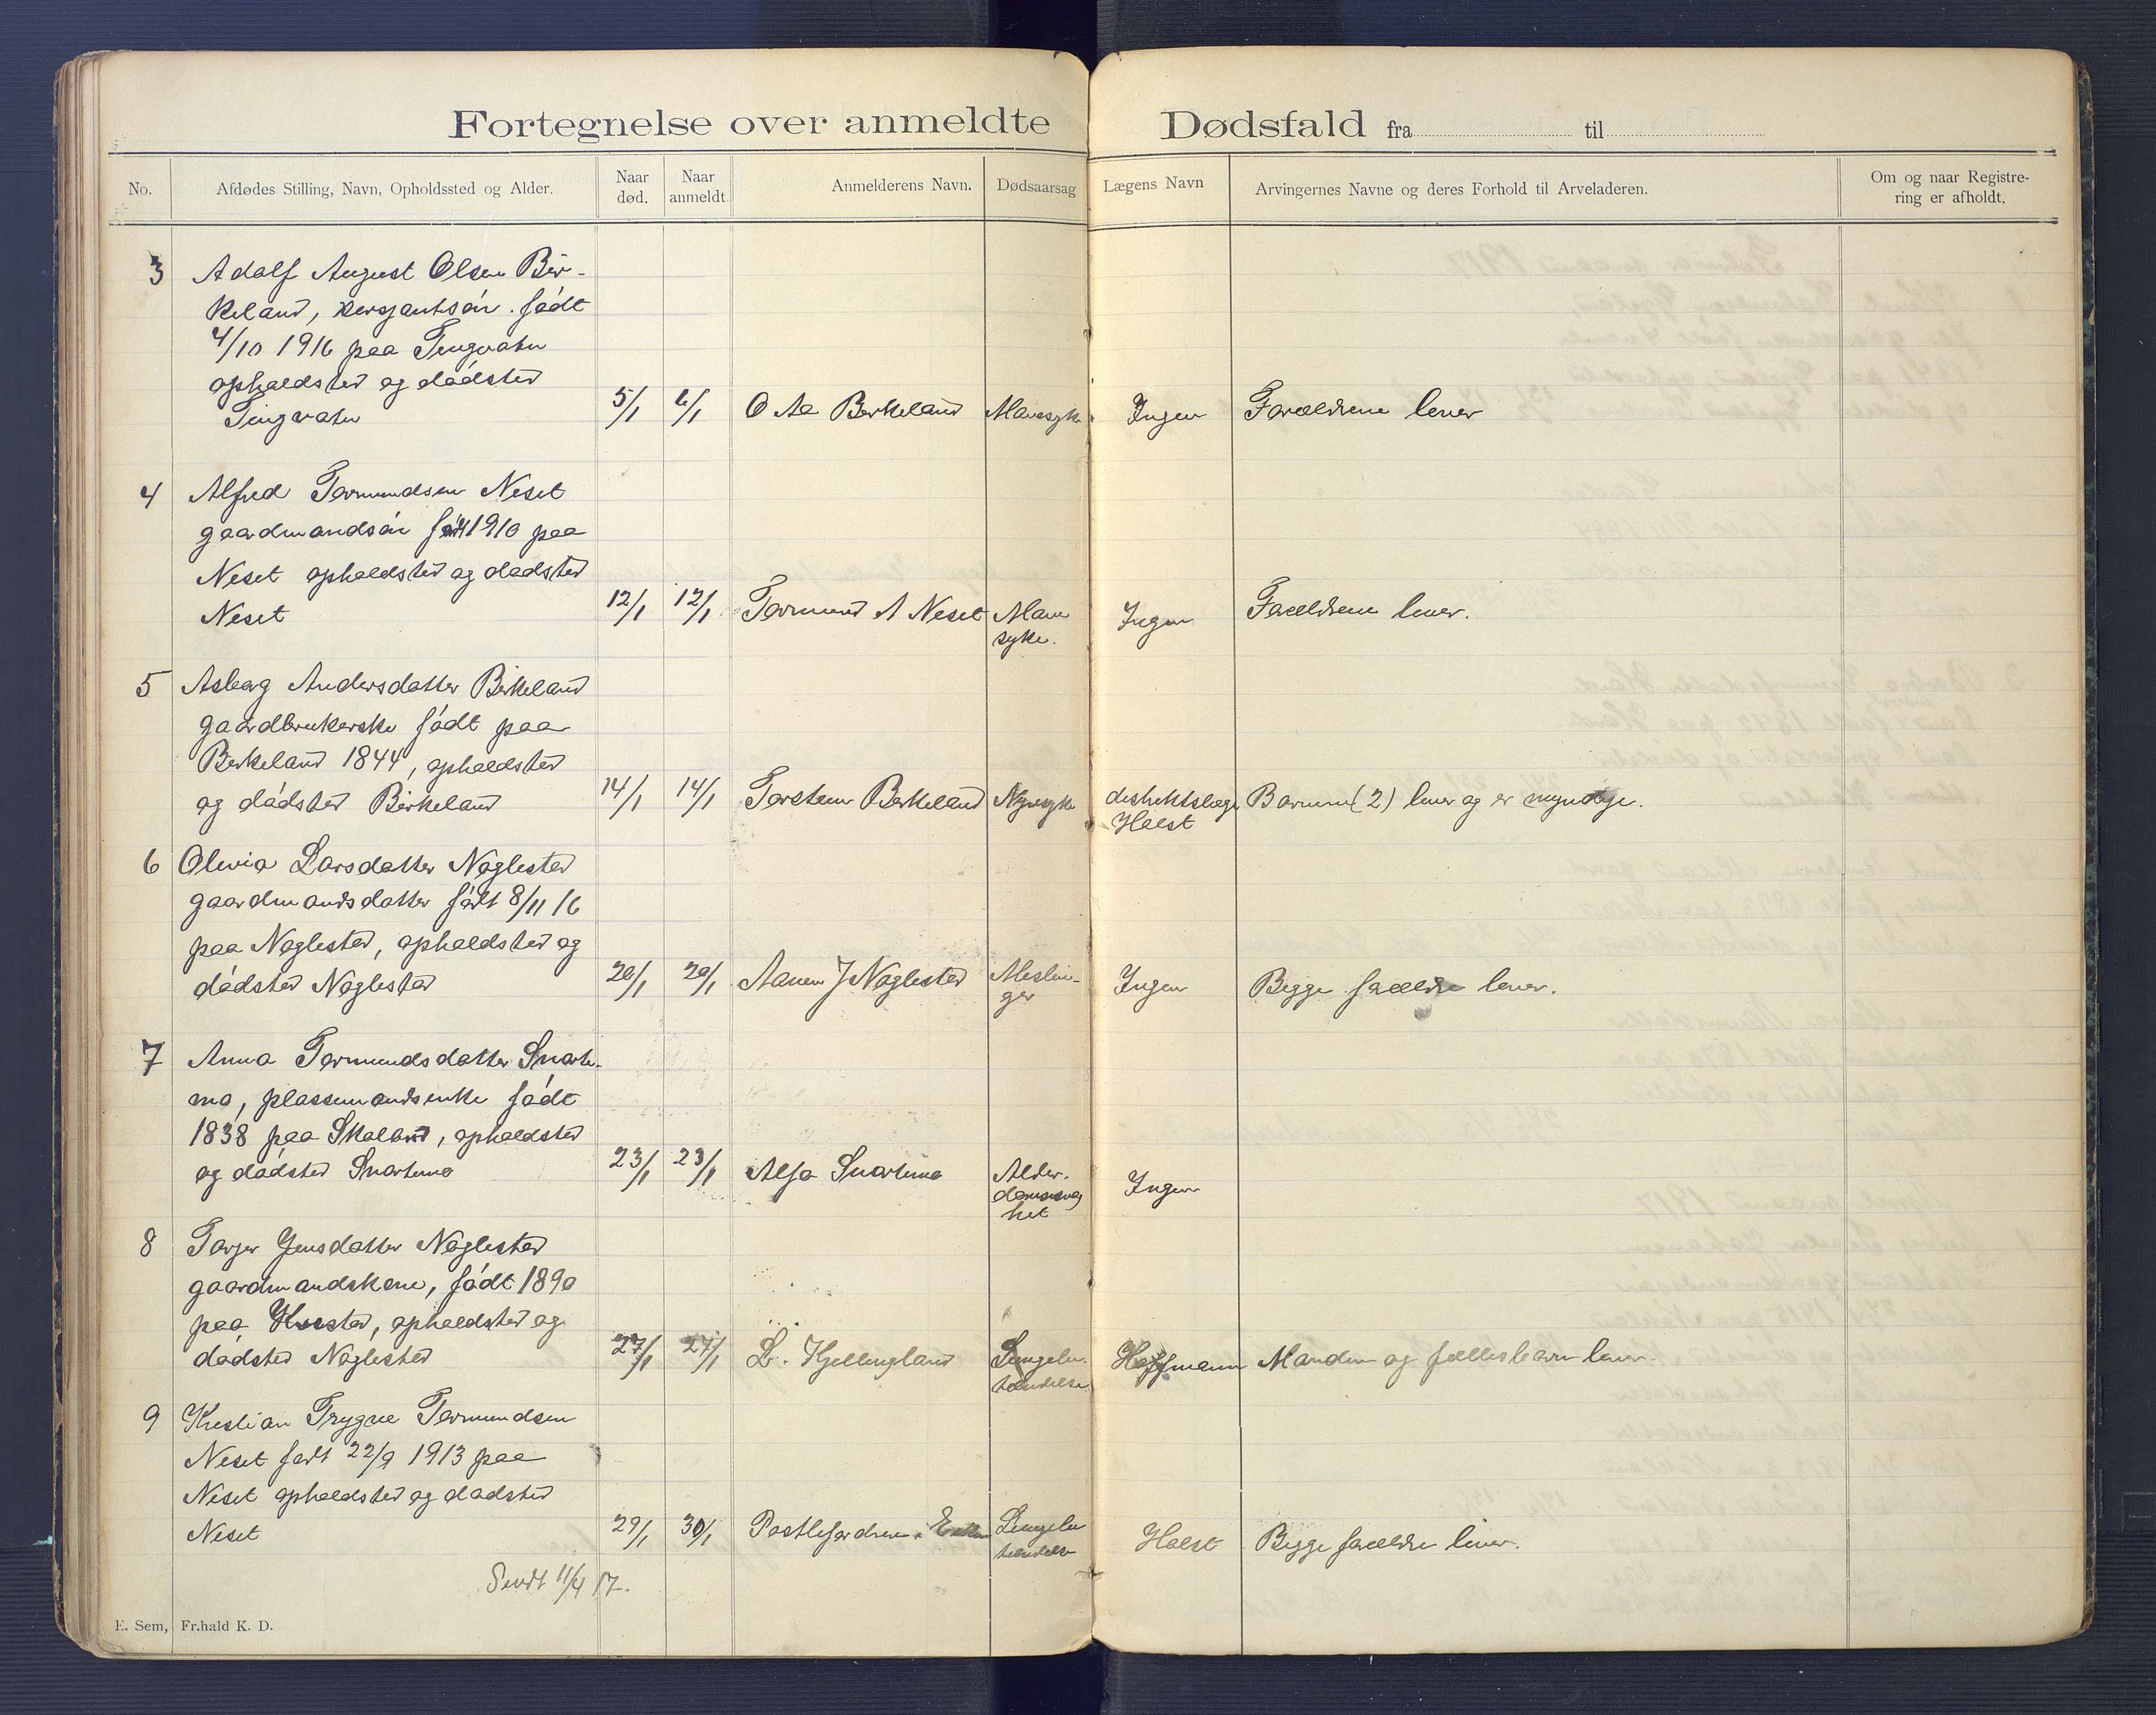 Fortegnelse over anmeldte Dødsfald fra til
No.
Afdødes Stilling, Navn, Opholdssted og Alder.
Naar død.
Naar anmeldt.
Anmelderens Navn.
Dødsaarsag
Lægens Navn
Arvingernes Navne og deres Forhold til Arveladeren.
Om og naar Registre-
ring er afholdt.
3 Adolf August Olsen Bir-
keland, sersjantsön. född
4/10 1916 paa Tingvatn
opholdsted og dødsted
Tingvatn 5/1 6/1 O Aa Berkeland Mavesyke Ingen Forældrene lever
4 Alfred Tormundsen Neset
gaardmandsön född 1910 paa
Neset opholdsted og dødsted
Neset 12/1 12/1 Tormund A Neset Mave Ingen Forældrene lever.
syke.
5 Asborg Andersdatter Birkeland
gaardbrukerske født paa
Berkeland 1844, opholdsted
og dødsted Birkeland 14/1 14/1 Torstein Berkeland Nyresyke destriktslæge Barnene (2) lever og er myndige.
Holst
6 Olevia Larsdatter Naglestad
gaardmandsdatter født 8/11 16
paa Naglestad, opholdsted og
dødsted Naglestad 20/1 20/1 Aanen J Naglestad Meslin- Ingen Begge forældre lever.
ger
7 Anna Tormundsdatter Snarte-
mo, plassemandsenke født
1838 paa Skaland, opholdsted
og dødsted Snartemo 23/1 23/1 Alfa Snartemo Alder- Ingen
domssvag
het
8 Torjer Jensdatter Naglestad
gaardmandskone, født 1890
paa opholdsted og
dødsted Naglestad 27/1 27/1 L. Kjellingland Lungebe- Hoffmann Manden og fællesbarn lever.
tændelse
9 Kristian Trygve Tormundsen
Neset født 22/9 1913 paa
Neset opholdsted og dødsted
Neset 29/1 30/1 Lungebe Holst Begge forældre lever.
tændelse
Sendt 11/4 17.
E. Sem, Fr.hald K. D.